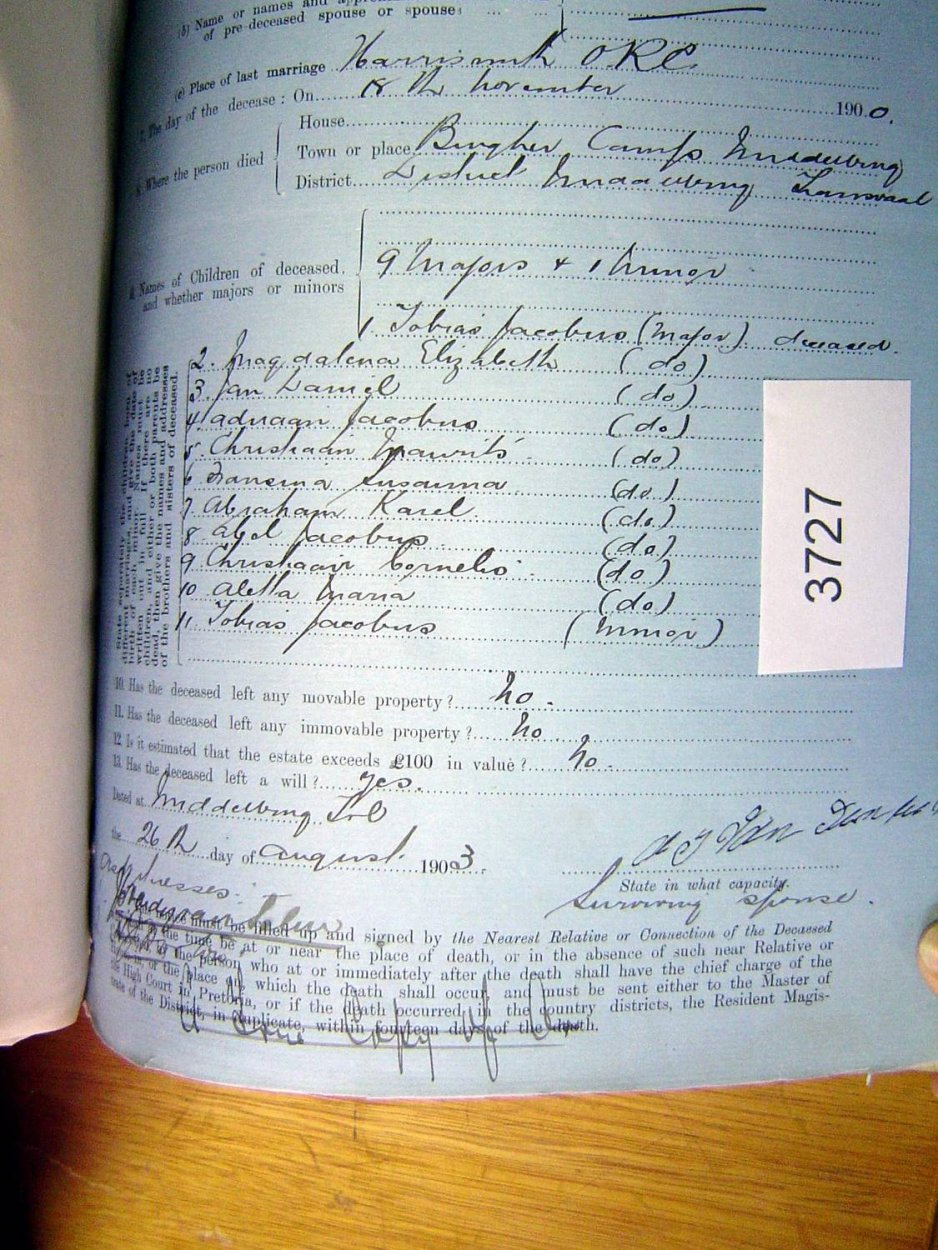 (b) Name or names and
of pre-deceased spouse or spouses
(c) Place of last marriage Harrismith ORC
7. The day of the decease: On 18th November 1900.
House
8. Where the person died Town or place Burgher Camp Middelburg
District District Middelburg Transvaal
9. Names of Children of deceased,
and whether majors or minors
9 Majors + 1 minor
1. Tobias Jacobus (Major) deceased.
2. Magdalena Elizabeth (do)
3 Jan Daniel (do)
4 Adriaan Jacobus (do)
5. Christiaan Maurits (do)
6 Susanna (do)
7 Abraham Karel (do)
8. Abel Jacobus (do)
9 Christiaan Cornelis (do)
10 Aletta Maria (do)
11 Tobias Jacobus (Minor)
State separately the children born of
different marriages, and give the date of
birth of each minor. Names must be
written out in full. If there are no
children, and either or both parents be
dead, then give the names and addresses
of the brothers and sisters of deceased.
3727
10. Has the deceased left any movable property? No.
11. Has the deceased left any immovable property? No
12. Is it estimated that the estate exceeds £100 in value? No.
13. Has the deceased left a will? yes.
Dated at Middelburg
the 26th day of August 1903.
State in what capacity.
Surviving spouse.
As witnesses.
notice must be filled up and signed by the Nearest Relative or Connection of the Deceased
at the time be at or near the place of death, or in the absence of such near Relative or
by the person who at or immediately after the death shall have the chief charge of the
in, or the place in which the death shall occur, and must be sent either to the Master of
the High Court in Pretoria, or if the death occurred in the country districts, the Resident Magis-
trate of the District, in duplicate, within fourteen days of the death.
A True Copy of